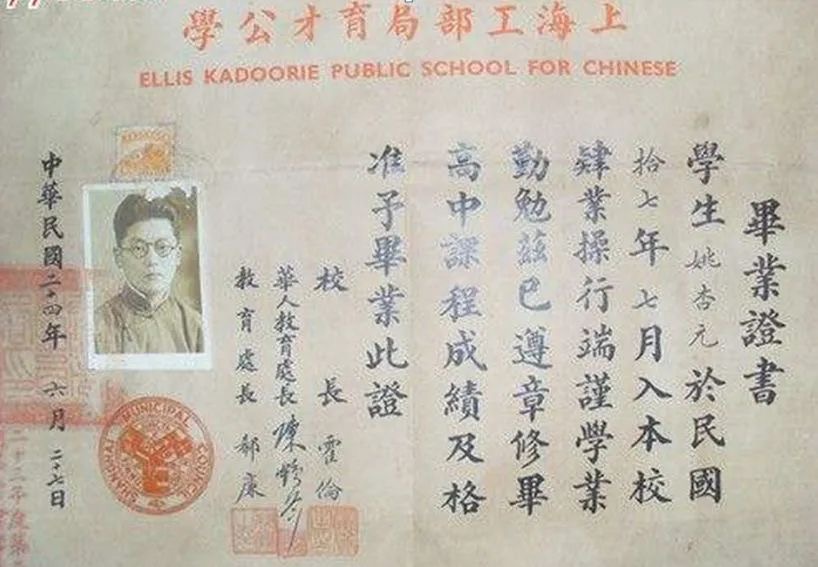 上海工部局育才公學
ELLIS KADOORIE PUBLIC SCHOOL FOR CHINESE
畢業證書
學生姚杏元於民國
拾七年七月入本校
肄業操行端謹學業
勤勉茲已遵章修畢
高中課程成績及格
准予畢業此證
校長 霍倫
華人教育處長 陳鶴琴
教育處長 郝廉
中華民國二十四年 六月 二十七日
SHANGHAI MUNICIPAL COUNCIL
二十三年度第